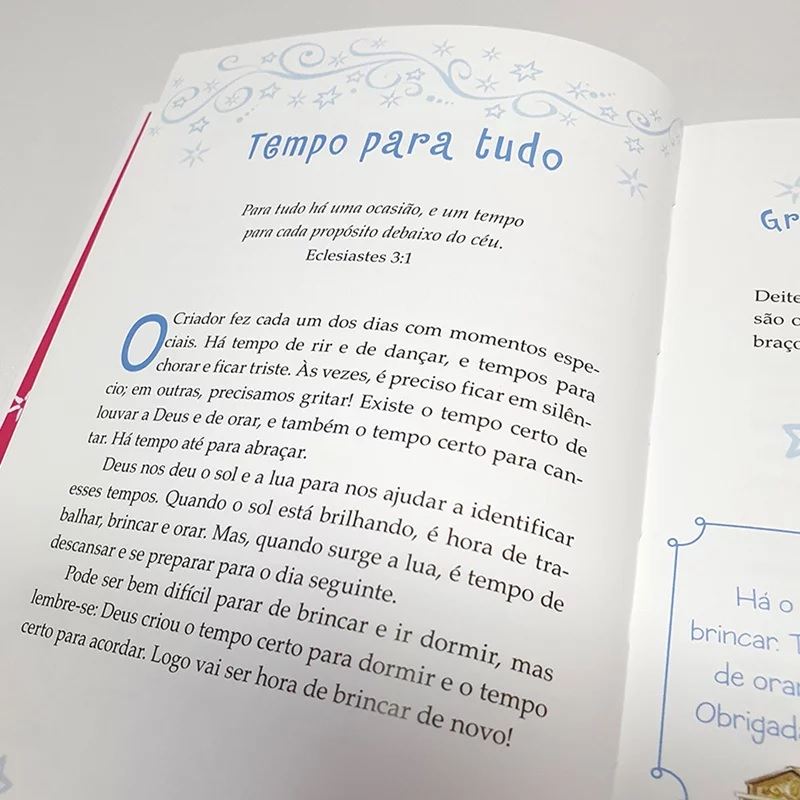 Tempo para tudo
Para tudo há uma ocasião, e um tempo
para cada propósito debaixo do céu.
Eclesiastes 3:1
O Criador fez cada um dos dias com momentos espe-
ciais. Há tempo de rir e de dançar, e tempos para
chorar e ficar triste. Às vezes, é preciso ficar em silên-
cio; em outras, precisamos gritar! Existe o tempo certo de
louvar a Deus e de orar, e também o tempo certo para can-
tar. Há tempo até para abraçar.
Deus nos deu o sol e a lua para nos ajudar a identificar
esses tempos. Quando o sol está brilhando, é hora de tra-
balhar, brincar e orar. Mas, quando surge a lua, é tempo de
descansar e se preparar para o dia seguinte.
Pode ser bem difícil parar de brincar e ir dormir, mas
lembre-se: Deus criou o tempo certo para dormir e o tempo
certo para acordar. Logo vai ser hora de brincar de novo!
Gr
Deite
são o
braço
Há o
brincar. T
de orar
Obrigada